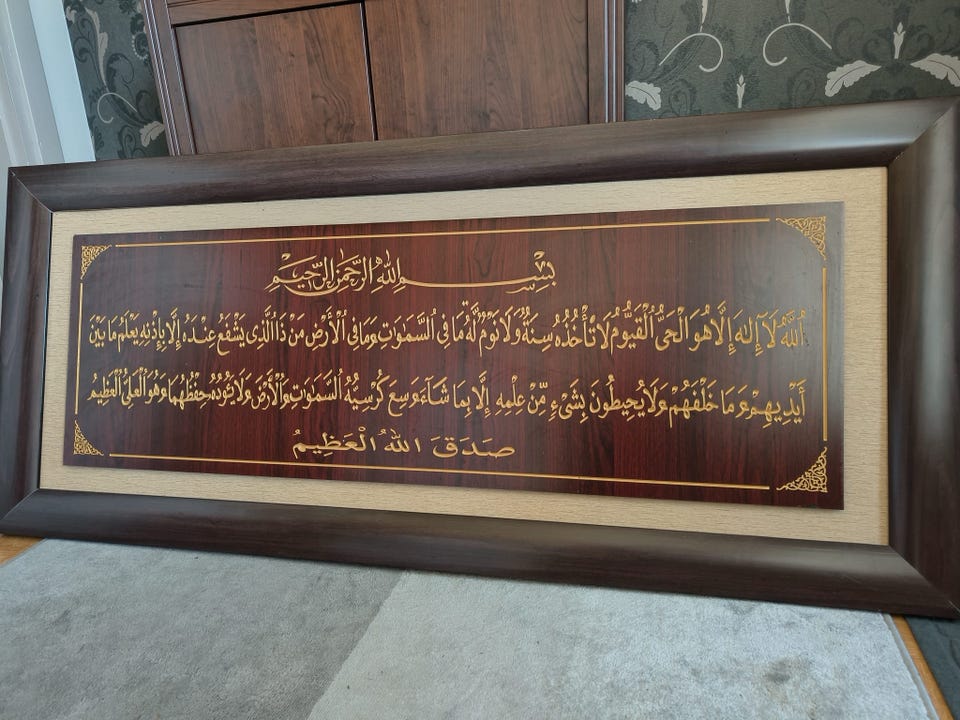 بِسْمِ اللهِ الرَّحْمَنِ الرَّحِيْمِ
اَللهُ لَآ إِلَهَ إِلَّا هُوَ الْحَىُّ الْقَيُّومُ لَا تَأْخُذُهُ سِنَةٌ وَلَا نَوْمٌ لَّهُ مَا فِى السَّمٰوٰتِ وَمَا فِى الْأَرْضِ مَنْ ذَا الَّذِى يَشْفَعُ عِنْدَهُ إِلَّا بِإِذْنِهِ يَعْلَمُ مَا بَيْنَ
أَيْدِيهِمْ وَمَا خَلْفَهُمْ وَلَا يُحِيطُونَ بِشَىْءٍ مِّنْ عِلْمِهِ إِلَّا بِمَا شَآءَ وَسِعَ كُرْسِيُّهُ السَّمٰوٰتِ وَالْأَرْضَ وَلَا يَئُودُهُ حِفْظُهُمَا وَهُوَ الْعَلِىُّ الْعَظِيمُ
صَدَقَ اللهُ الْعَظِيمُ